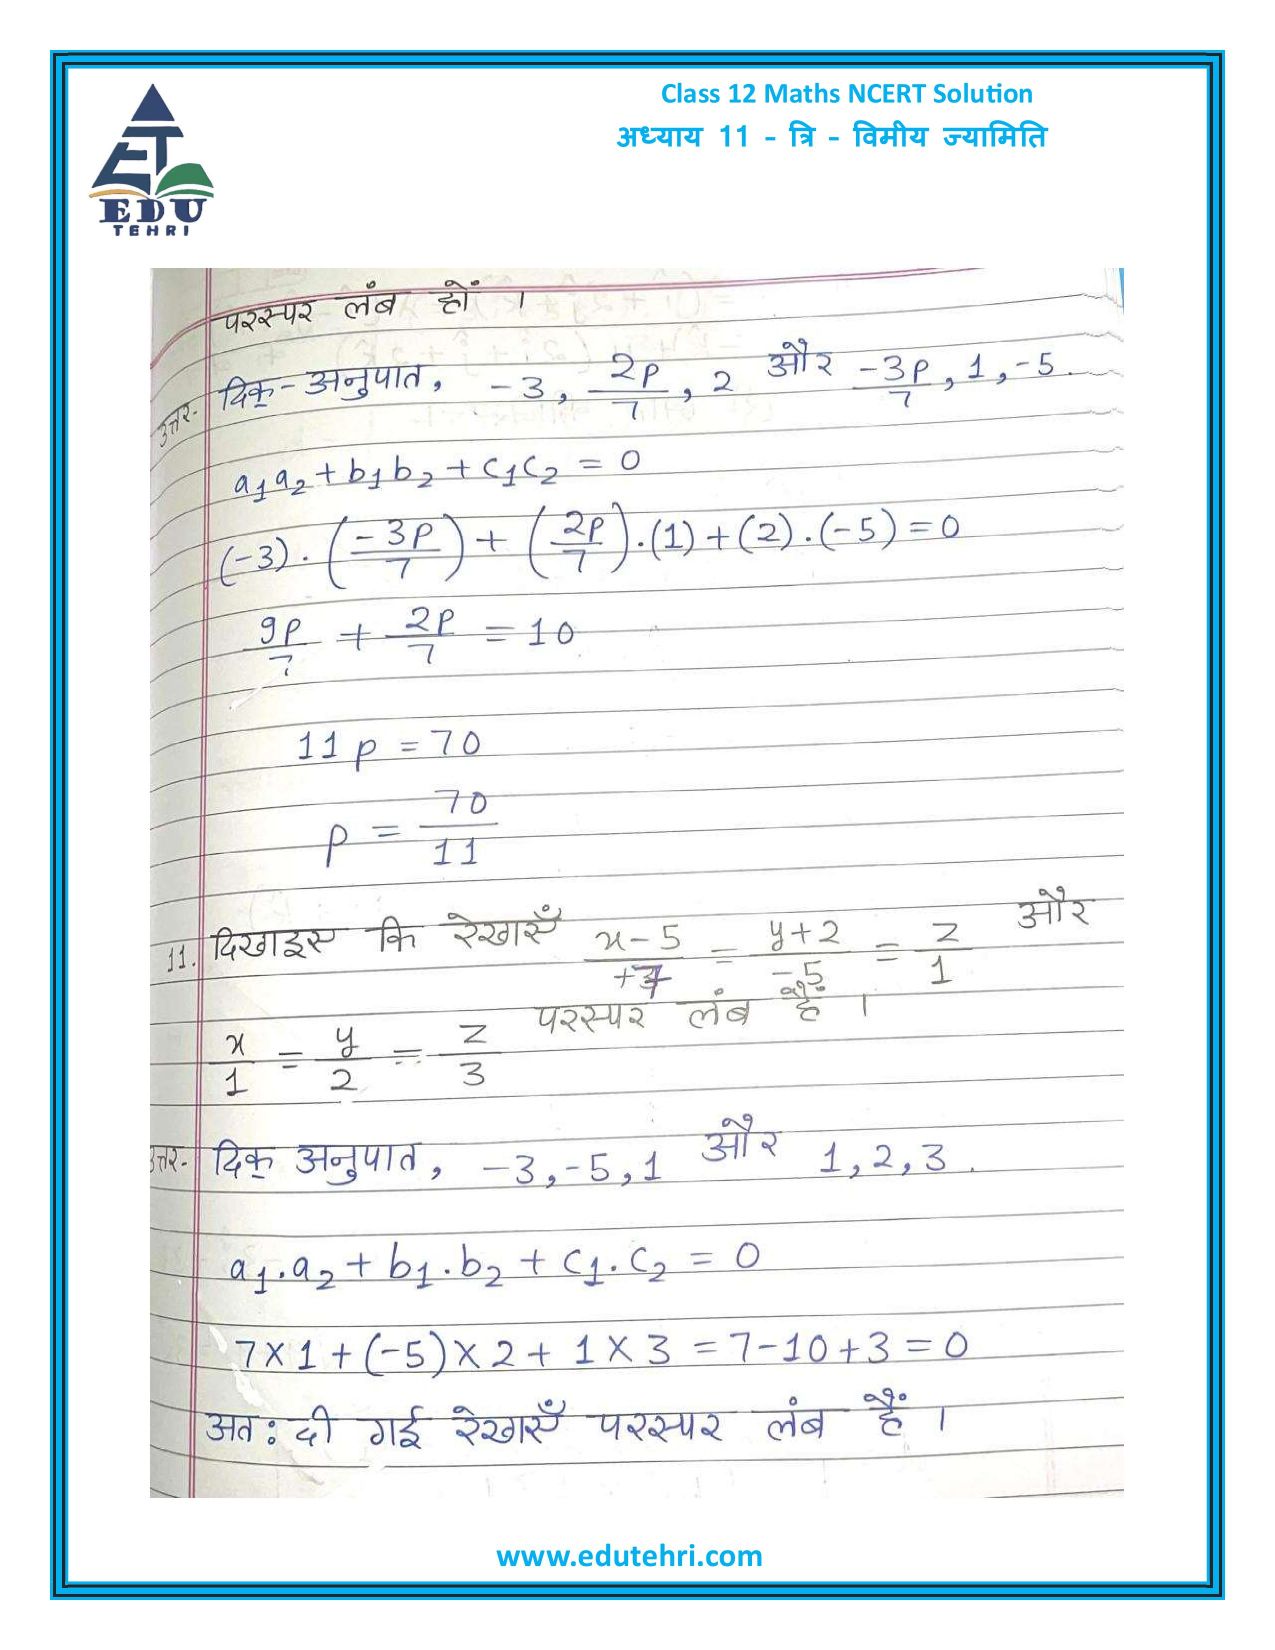 Class 12 Maths NCERT Solution
अध्याय 11 - त्रि - विमीय ज्यामिति
EDU
TEHRI
परस्पर लंब हों ।
उत्तर- दिक्-अनुपात, -3, 2p/7, 2 और -3p/7, 1, -5.
a₁a₂ + b₁b₂ + c₁c₂ = 0
(-3).(-3p/7) + (2p/7).(1) + (2).(-5) = 0
9p/7 + 2p/7 = 10
11p = 70
p = 70/11
11. दिखाइए कि रेखाएँ x-5/+7 = y+2/-5 = z/1 और
x/1 = y/2 = z/3 परस्पर लंब हैं ।
उत्तर- दिक् अनुपात, -3, -5, 1 और 1, 2, 3.
a₁.a₂ + b₁.b₂ + c₁.c₂ = 0
7×1 + (-5)×2 + 1×3 = 7-10+3 = 0
अतः दी गई रेखाएँ परस्पर लंब हैं ।
www.edutehri.com